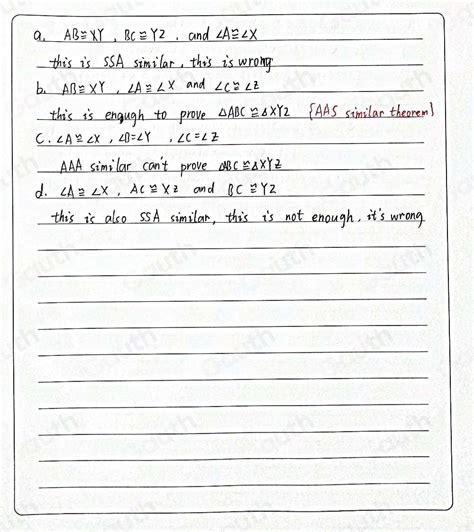 a. AB≅XY, BC≅YZ, and ∠A≅∠X
this is SSA similar, this is wrong
b. AB≅XY, ∠A≅∠X and ∠C≅∠Z
this is enough to prove △ABC≅△XYZ {AAS similar theorem}
C. ∠A≅∠X, ∠B=∠Y, ∠C=∠Z
AAA similar can't prove △ABC≅△XYZ
d. ∠A≅∠X, AC≅XZ and BC≅YZ
this is also SSA similar, this is not enough, it's wrong